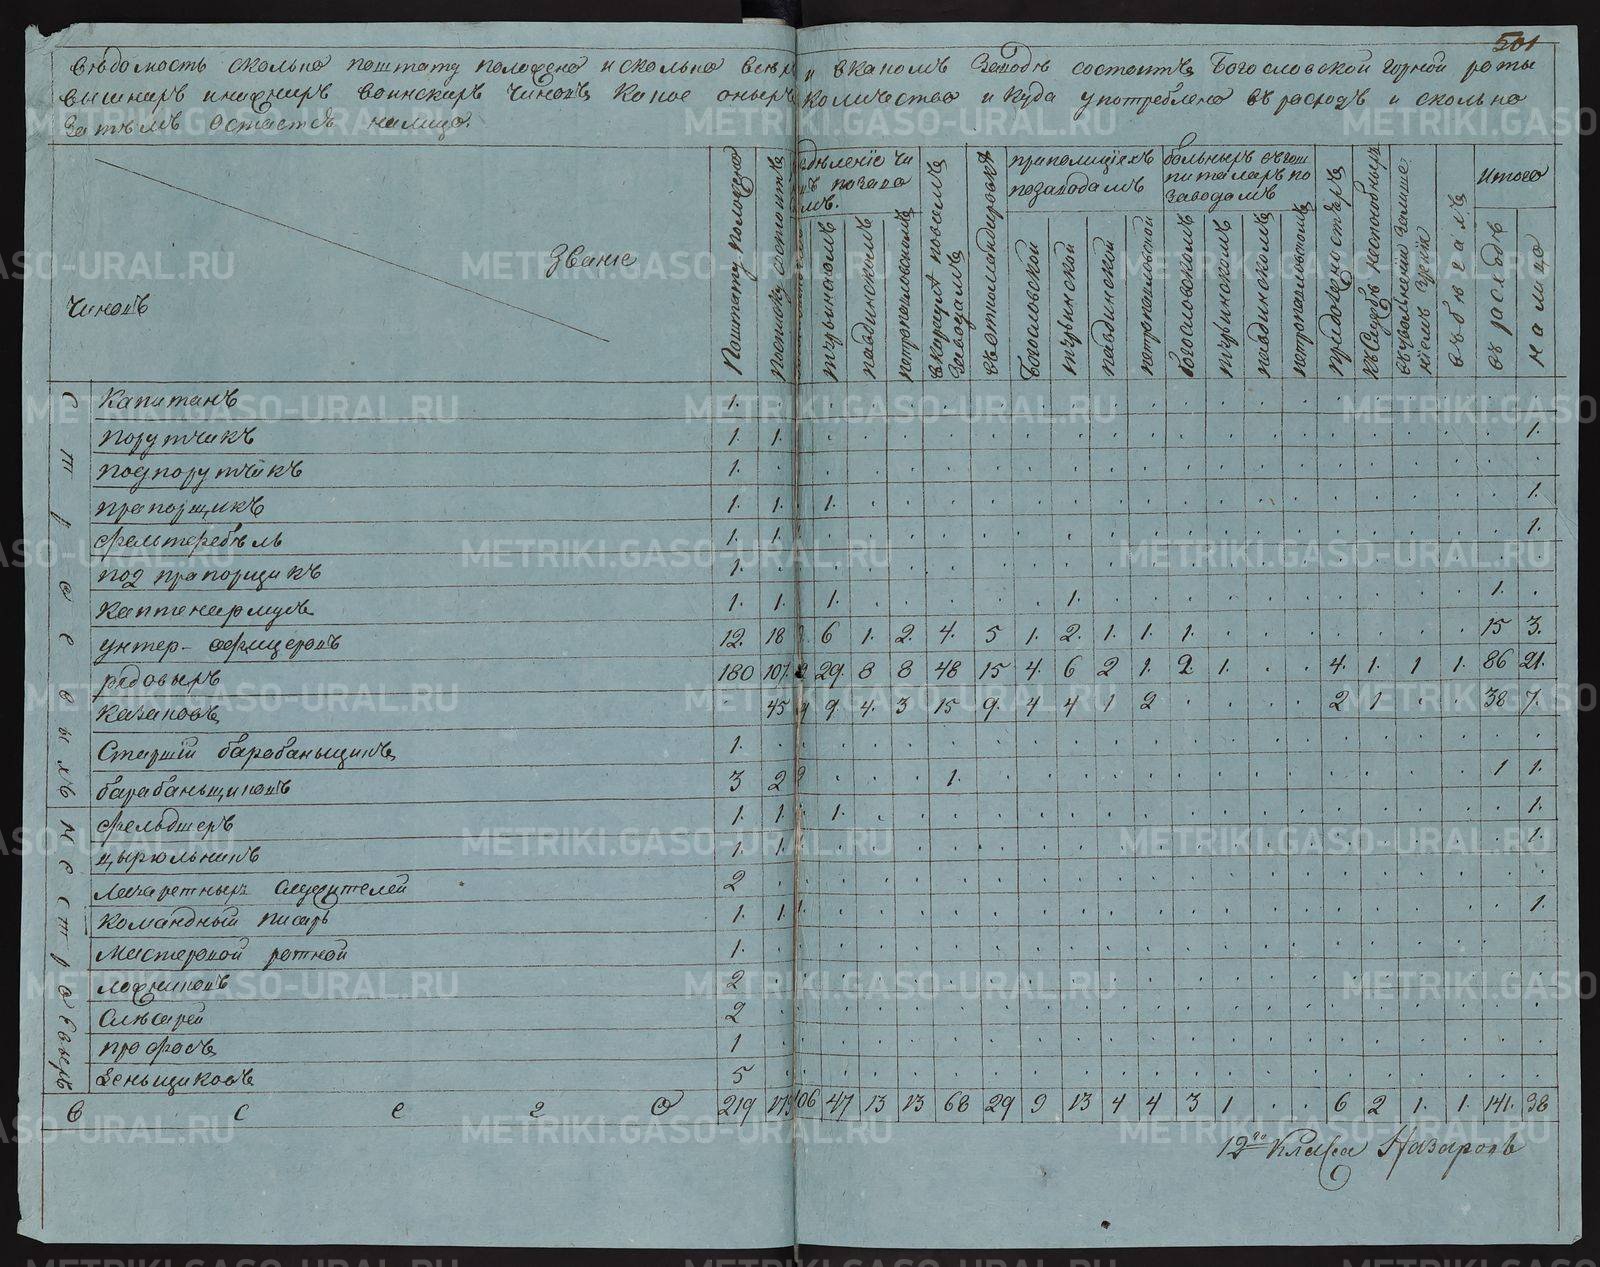 501
Вѣдомость сколько поштату положено и сколько всѣхъ и вкакомъ Заводѣ состоитъ Богословской горной роты
вышнихъ инижнихъ воинскихъ Чиновъ Какое оныхъ количество и Куда употреблено въ расходъ и сколько
Затѣмъ остается налицо.
Званіе
Чиновъ
Поштату положено
Поспискѣ состоитъ
турьинскомъ
павдинскомъ
петропавловскомъ
вкараулѣ повсемъ Заводамъ
въоткомандировкѣ
приполиціяхъ позаводамъ
Богословской
турьинской
павдинской
петропавловской
больныхъ въгошпиталяхъ по Заводамъ
богословскомъ
турьинскомъ
павдинскомъ
петропавловскомъ
къслужбѣ неспособныхъ
въбѣгахъ
Итого
въ расходѣ
налицо
Строевыхъ
Капитанъ 1.
порутчикъ 1. 1. 1.
подпорутчикъ 1.
прапорщикъ 1. 1. 1. 1.
фельтфебѣль 1. 1. 1.
под прапорщикъ 1.
Каптенармусъ 1. 1. 1. 1. 1.
унтер-офицеровъ 12. 18 6 1. 2. 4. 5 1. 2. 1. 1. 1. 15 3.
рядовыхъ 180 107. 29. 8 8 48 15 4. 6 2 1. 2. 1. 4. 1. 1 1. 86 21.
Казаковъ 45 9. 4. 3 15 9. 4 4 1 2 2 1 38 7.
Старшій барабаньщикъ 1.
барабаньщиковъ 3 2 1. 1 1.
Нестроевыхъ
фельдшеръ 1. 1. 1. 1.
цырюльникъ 1. 1. 1.
лазаретныхъ служителей 2
Командный писарь 1. 1. 1.
Мастеровой ротной 1.
ложниковъ 2
Слѣсарей 2
профосъ 1
деньщиковъ 5
Всего 219 179 106 47 13 13 68 29 9 13 4 4 3 1 6 2 1. 1. 141. 38
12го Класса Назаровъ
METRIKI.GASO-URAL.RU